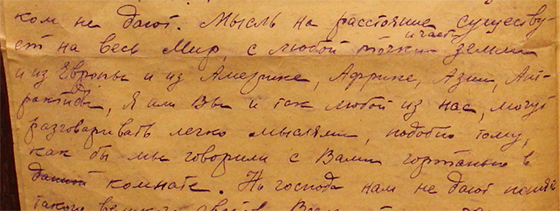 ком не дают. Мысль на расстояние существу
ет на весь Мир, с любой точки и части земли
и из Европы и из Америке, Африке, Азии, Ант
рактиды, Я или Вы и так любой из нас, могут
разговаривать легко мыслями, подобно тому,
как бы мы говорили с Вами гортанью в
данной комнате. Но господа нам не дают
такого